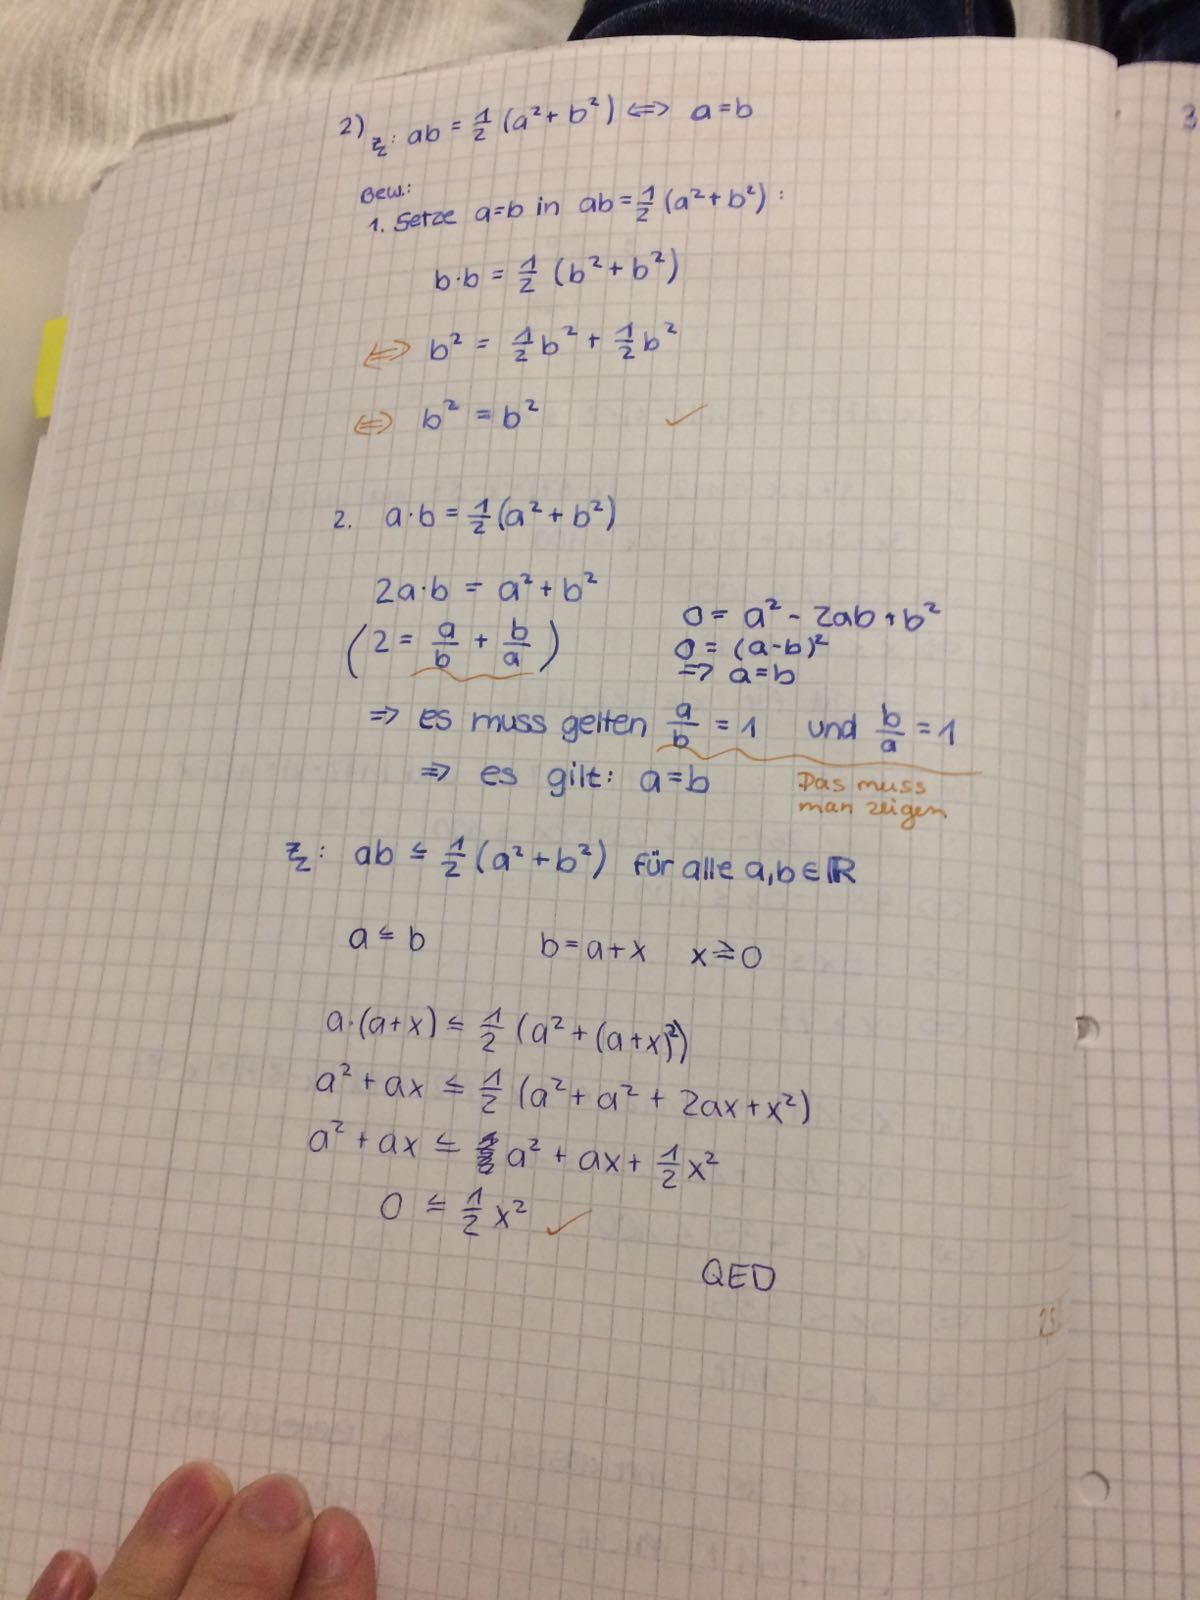 2) zz: ab = 1/2 (a² + b²) ⇔ a = b
Bew.:
1. Setze a=b in ab = 1/2 (a² + b²) :
b·b = 1/2 (b² + b²)
⇔ b² = 1/2 b² + 1/2 b²
⇔ b² = b² ✓
2. a·b = 1/2 (a² + b²)
2a·b = a² + b²
(2 = a/b + b/a)
0 = a² - 2ab + b²
0 = (a-b)²
⇒ a=b
⇒ es muss gelten a/b = 1 und b/a = 1
⇒ es gilt: a=b
Das muss
man zeigen
zz: ab ≤ 1/2 (a² + b²) für alle a,b ∈ ℝ
a ≤ b b = a+x x ≥ 0
a·(a+x) ≤ 1/2 (a² + (a+x)²)
a² + ax ≤ 1/2 (a² + a² + 2ax + x²)
a² + ax ≤ a² + ax + 1/2 x²
0 ≤ 1/2 x² ✓
QED
3